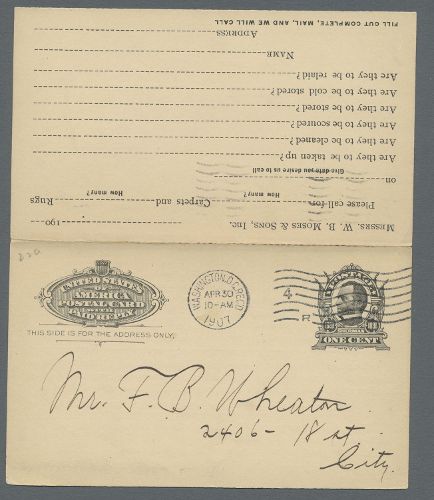 MESSRS. W. B. MOSES & SONS, INC. 190
Please call for Carpets and Rugs
How many? How many?
on
Give date you desire us to call
Are they to be taken up?
Are they to be cleaned?
Are they to be scoured?
Are they to be stored?
Are they to be cold stored?
Are they to be relaid?
NAME
ADDRESS
FILL OUT COMPLETE, MAIL, AND WE WILL CALL
220
UNITED STATES
OF
AMERICA
POSTAL CARD
WITH
PAID REPLY
THIS SIDE IS FOR THE ADDRESS ONLY.
WASHINGTON, D.C. REC'D
APR 30
10-AM
1907
4
R
ONE CENT
Mr. F. B. Wheaton
2406 - 18 st.
City.